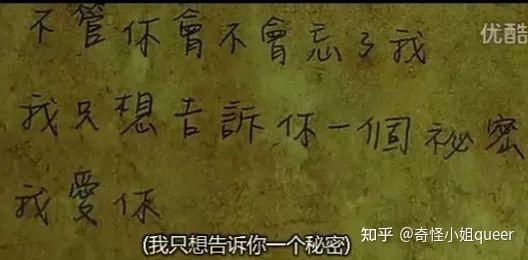 优酷
不管你會不會忘了我
我只想告訴你一個祕密
我愛你
(我只想告诉你一个秘密)
知乎 @奇怪小姐queer